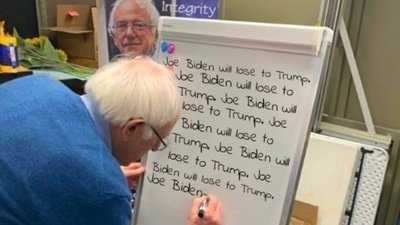 Integrity
Joe Biden will lose to Trump.
Joe Biden will lose to
Trump. Joe Biden will
lose to Trump. Joe
Biden will lose to
Trump. Joe Biden will
lose to Trump. Joe
Biden will lose to Trump.
Joe Biden